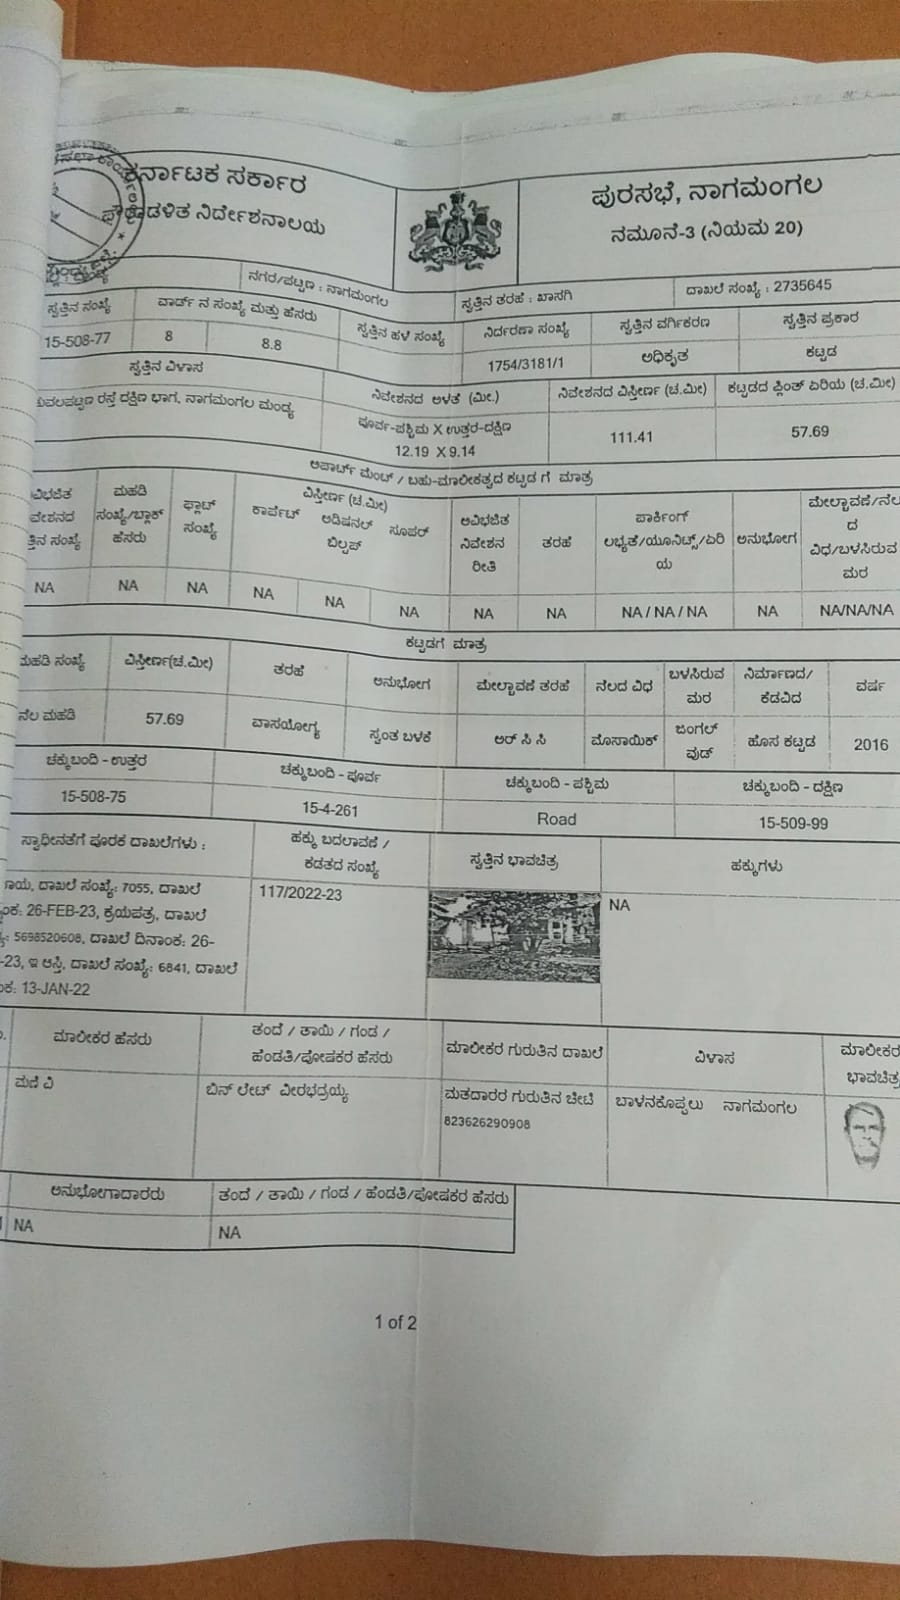 ಕರ್ನಾಟಕ ಸರ್ಕಾರ
ಪೌರಾಡಳಿತ ನಿರ್ದೇಶನಾಲಯ
ಪುರಸಭೆ, ನಾಗಮಂಗಲ
ನಮೂನೆ-3 (ನಿಯಮ 20)
ನಗರ/ಪಟ್ಟಣ : ನಾಗಮಂಗಲ
ಸ್ವತ್ತಿನ ತರಹೆ : ಖಾಸಗಿ
ದಾಖಲೆ ಸಂಖ್ಯೆ : 2735645
ಸ್ವತ್ತಿನ ಸಂಖ್ಯೆ
ವಾರ್ಡ್ ನ ಸಂಖ್ಯೆ ಮತ್ತು ಹೆಸರು
ಸ್ವತ್ತಿನ ಹಳೆ ಸಂಖ್ಯೆ
ನಿರ್ದರಣಾ ಸಂಖ್ಯೆ
ಸ್ವತ್ತಿನ ವರ್ಗಿಕರಣ
ಸ್ವತ್ತಿನ ಪ್ರಕಾರ
15-508-77
8
8.8
1754/3181/1
ಅಧಿಕೃತ
ಕಟ್ಟಡ
ಸ್ವತ್ತಿನ ವಿಳಾಸ
ನಿವೇಶನದ ಅಳತೆ (ಮೀ.)
ನಿವೇಶನದ ವಿಸ್ತೀರ್ಣ (ಚ.ಮೀ)
ಕಟ್ಟಡದ ಪ್ಲಿಂತ್ ಏರಿಯ (ಚ.ಮೀ)
ರಸ್ತೆ ದಕ್ಷಿಣ ಭಾಗ, ನಾಗಮಂಗಲ ಮಂಡ್ಯ
ಪೂರ್ವ-ಪಶ್ಚಿಮ X ಉತ್ತರ-ದಕ್ಷಿಣ
12.19 X 9.14
111.41
57.69
ಅಪಾರ್ಟ್ ಮೆಂಟ್ / ಬಹು-ಮಾಲೀಕತ್ವದ ಕಟ್ಟಡ ಗೆ ಮಾತ್ರ
ಮಹಡಿ
ಸಂಖ್ಯೆ/ಬ್ಲಾಕ್
ಹೆಸರು
ಫ್ಲಾಟ್
ಸಂಖ್ಯೆ
ವಿಸ್ತೀರ್ಣ (ಚ.ಮೀ)
ಕಾರ್ಪೆಟ್ ಅಡಿಷನಲ್ ಸೂಪರ್
ಬಿಲ್ಟಪ್
ಅವಿಭಜಿತ
ನಿವೇಶನ
ರೀತಿ
ತರಹೆ
ಪಾರ್ಕಿಂಗ್
ಲಭ್ಯತೆ/ಯೂನಿಟ್ಸ್/ಏರಿ
ಯ
ಅನುಭೋಗ
ಮೇಲ್ಛಾವಣೆ/ನೆಲ
ದ
ವಿಧ/ಬಳಸಿರುವ
ಮರ
NA
NA
NA
NA
NA
NA
NA
NA
NA / NA / NA
NA
NA/NA/NA
ಕಟ್ಟಡಗೆ ಮಾತ್ರ
ಮಹಡಿ ಸಂಖ್ಯೆ
ವಿಸ್ತೀರ್ಣ(ಚ.ಮೀ)
ತರಹೆ
ಅನುಭೋಗ
ಮೇಲ್ಛಾವಣೆ ತರಹೆ
ನೆಲದ ವಿಧ
ಬಳಸಿರುವ
ಮರ
ನಿರ್ಮಾಣದ/
ಕೆಡವಿದ
ವರ್ಷ
ನೆಲ ಮಹಡಿ
57.69
ವಾಸಯೋಗ್ಯ
ಸ್ವಂತ ಬಳಕೆ
ಆರ್ ಸಿ ಸಿ
ಮೊಸಾಯಿಕ್
ಜಂಗಲ್
ವುಡ್
ಹೊಸ ಕಟ್ಟಡ
2016
ಚಕ್ಕುಬಂದಿ - ಉತ್ತರ
ಚಕ್ಕುಬಂದಿ - ಪೂರ್ವ
ಚಕ್ಕುಬಂದಿ - ಪಶ್ಚಿಮ
ಚಕ್ಕುಬಂದಿ - ದಕ್ಷಿಣ
15-508-75
15-4-261
Road
15-509-99
ಸ್ವಾಧೀನತೆಗೆ ಪೂರಕ ದಾಖಲೆಗಳು :
ಹಕ್ಕು ಬದಲಾವಣೆ /
ಕಡತದ ಸಂಖ್ಯೆ
ಸ್ವತ್ತಿನ ಭಾವಚಿತ್ರ
ಹಕ್ಕುಗಳು
ದಾಖಲೆ ಸಂಖ್ಯೆ: 7055, ದಾಖಲೆ
26-FEB-23, ಕ್ರಯಪತ್ರ, ದಾಖಲೆ
5698520608, ದಾಖಲೆ ದಿನಾಂಕ: 26-
-23, ಇ ಆಸ್ತಿ, ದಾಖಲೆ ಸಂಖ್ಯೆ: 6841, ದಾಖಲೆ
13-JAN-22
117/2022-23
NA
ಮಾಲೀಕರ ಹೆಸರು
ತಂದೆ / ತಾಯಿ / ಗಂಡ /
ಹೆಂಡತಿ/ಪೋಷಕರ ಹೆಸರು
ಮಾಲೀಕರ ಗುರುತಿನ ದಾಖಲೆ
ವಿಳಾಸ
ಮಾಲೀಕರ
ಭಾವಚಿತ್ರ
ಮಣಿ ವಿ
ಬಿನ್ ಲೇಟ್ ವೀರಭದ್ರಯ್ಯ
ಮತದಾರರ ಗುರುತಿನ ಚೀಟಿ
823626290908
ಬಾಳನಕೊಪ್ಪಲು ನಾಗಮಂಗಲ
ಅನುಭೋಗಾದಾರರು
ತಂದೆ / ತಾಯಿ / ಗಂಡ / ಹೆಂಡತಿ/ಪೋಷಕರ ಹೆಸರು
NA
NA
1 of 2